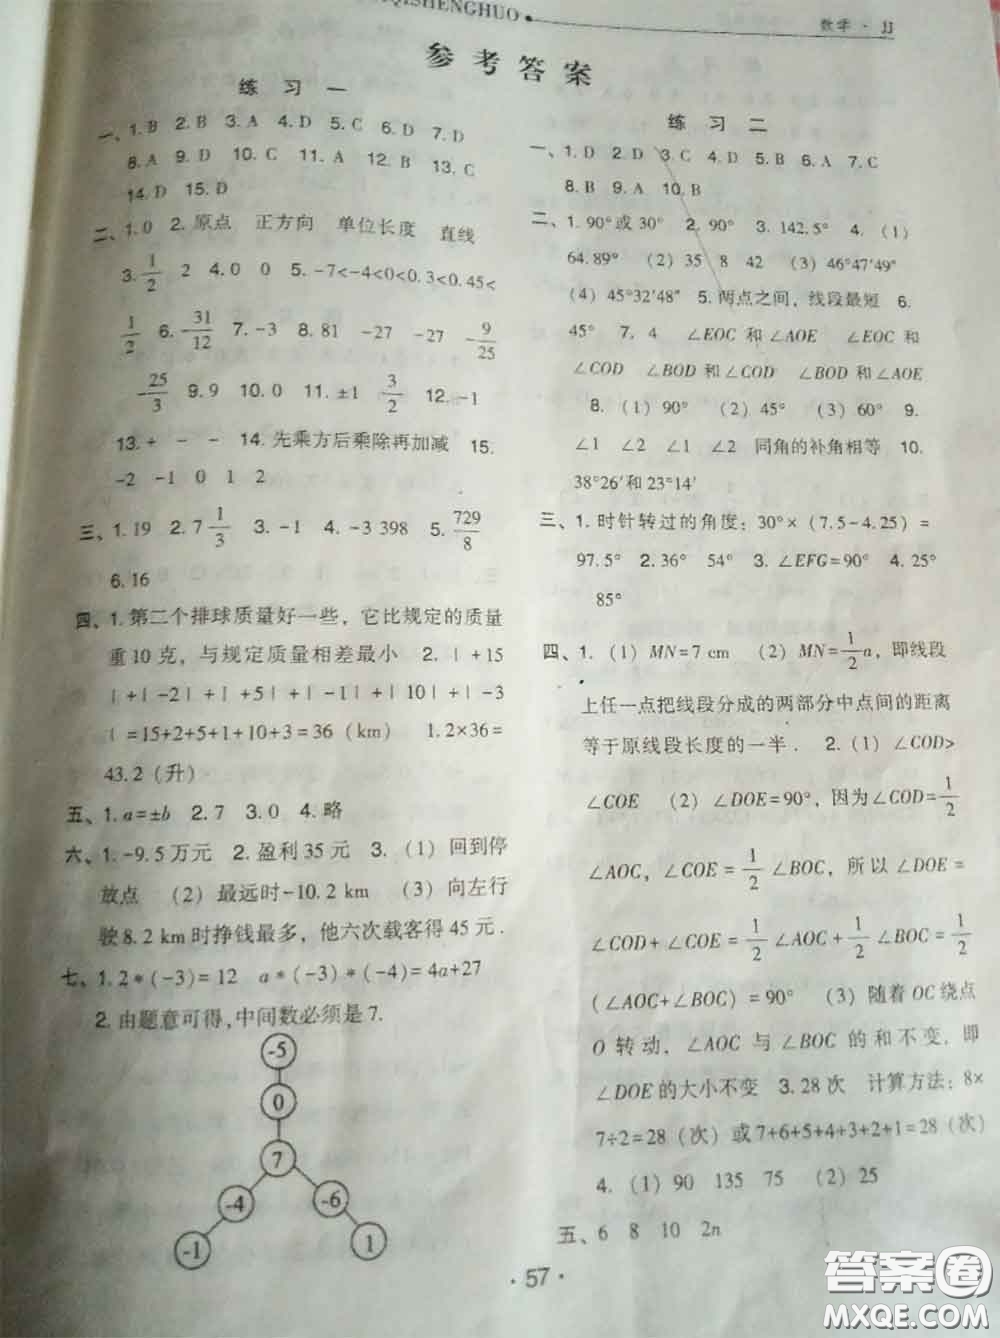 QISHENGHUO
数学 · JJ
参考答案
练 习 一
一、1. B 2. B 3. A 4. D 5. C 6. D 7. D
8. A 9. D 10. C 11. A 12. B 13. C
14. D 15. D
二、1. 0 2. 原点 正方向 单位长度 直线
3. 1/2 2 4. 0 0 5. -7<-4<0<0.3<0.45<
1/2 6. -31/12 7. -3 8. 81 -27 -27 -9/25
-25/3 9. 9 10. 0 11. ±1 3/2 12. -1
13. + - - 14. 先乘方后乘除再加减 15.
-2 -1 0 1 2
三、1. 19 2. 7 1/3 3. -1 4. -3 398 5. 729/8
6. 16
四、1. 第二个排球质量好一些，它比规定的质量
重10克，与规定质量相差最小 2. | +15
| + | -2 | + | +5 | + | -1 | + | +10 | + | -3
| =15+2+5+1+10+3=36（km） 1.2×36=
43.2（升）
五、1. a=±b 2. 7 3. 0 4. 略
六、1. -9.5万元 2. 盈利35元 3.（1）回到停
放点 （2）最远时-10.2 km （3）向左行
驶8.2 km时挣钱最多，他六次载客得45元．
七、1. 2*(-3)=12 a*(-3)*(-4)=4a+27
2. 由题意可得，中间数必须是7.
-5
0
7
-4 -6
-1 1
练 习 二
一、1. D 2. D 3. C 4. D 5. B 6. A 7. C
8. B 9. A 10. B
二、1. 90°或30° 2. 90° 3. 142.5° 4.（1）
64.89° （2）35 8 42 （3）46°47′49″
（4）45°32′48″ 5. 两点之间，线段最短 6.
45° 7. 4 ∠EOC和∠AOE ∠EOC和
∠COD ∠BOD和∠COD ∠BOD和∠AOE
8.（1）90° （2）45° （3）60° 9.
∠1 ∠2 ∠1 ∠2 同角的补角相等 10.
38°26′和23°14′
三、1. 时针转过的角度：30°×（7.5-4.25）=
97.5° 2. 36° 54° 3. ∠EFG=90° 4. 25°
85°
四、1.（1）MN=7 cm （2）MN=1/2 a，即线段
上任一点把线段分成的两部分中点间的距离
等于原线段长度的一半． 2.（1）∠COD>
∠COE （2）∠DOE=90°，因为∠COD=1/2
∠AOC，∠COE=1/2∠BOC，所以∠DOE=
∠COD+∠COE=1/2∠AOC+1/2∠BOC=1/2
(∠AOC+∠BOC)=90° （3）随着OC绕点
O转动，∠AOC与∠BOC的和不变，即
∠DOE的大小不变 3. 28次 计算方法：8×
7÷2=28（次）或7+6+5+4+3+2+1=28（次）
4.（1）90 135 75 （2）25
五、6 8 10 2n
· 57 ·
答案圈
MXQE.COM